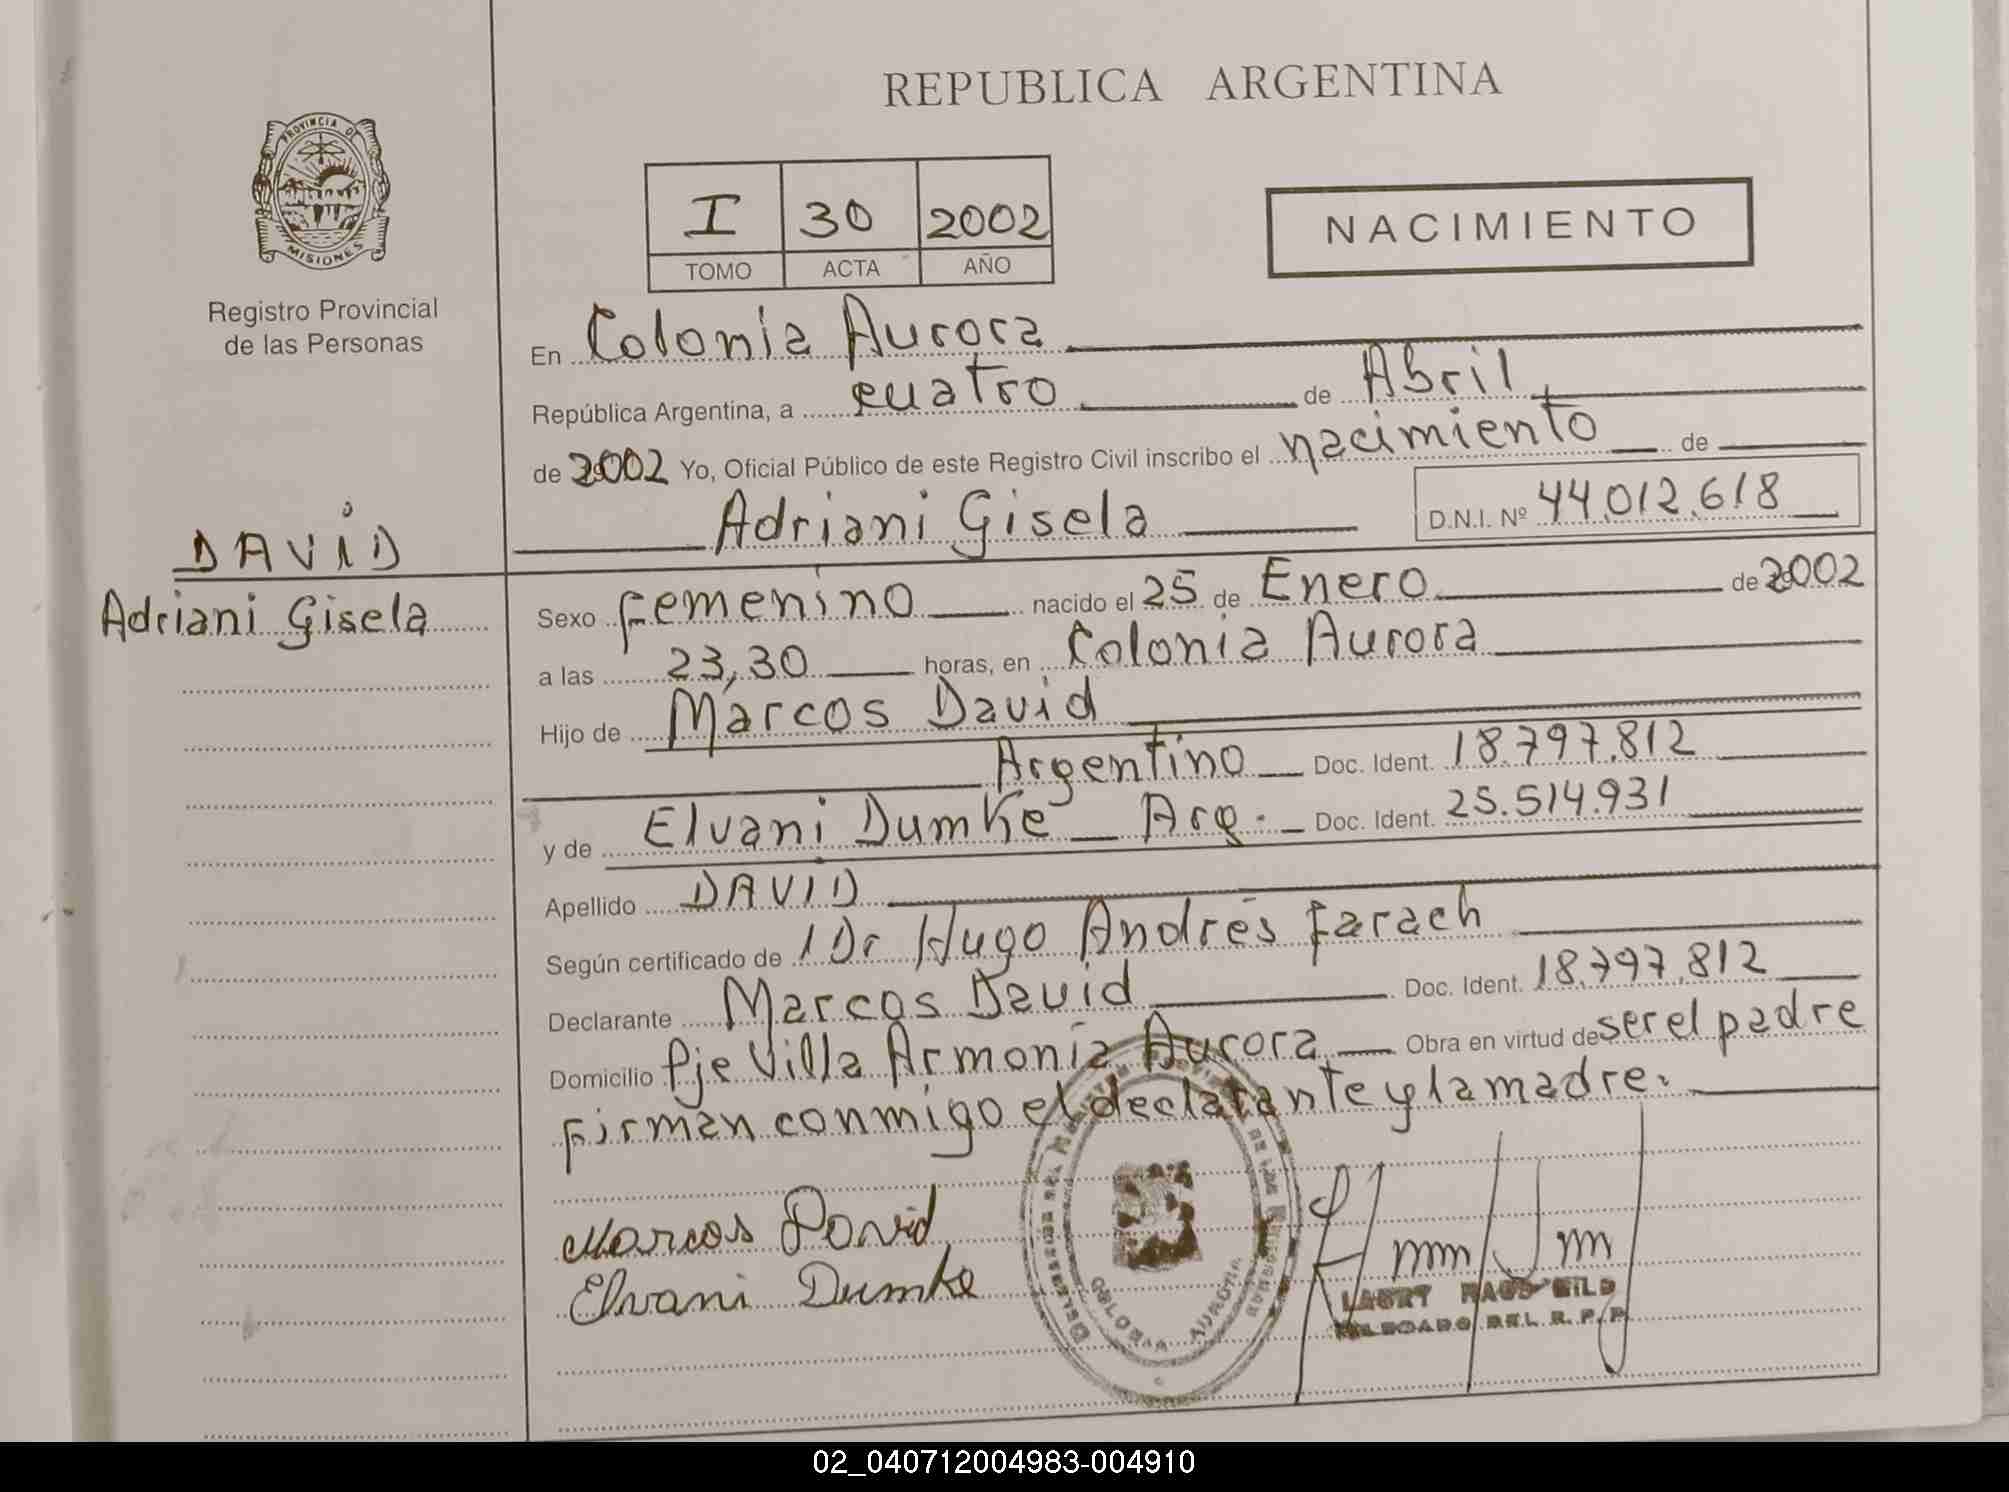 REPUBLICA ARGENTINA
PROVINCIA DE
MISIONES
Registro Provincial
de las Personas
I 30 2002
TOMO ACTA AÑO
NACIMIENTO
En Colonia Aurora
República Argentina, a cuatro de Abril
de 2002 Yo, Oficial Público de este Registro Civil inscribo el nacimiento de
Adriani Gisela D.N.I. Nº 44.012.618
DAVID
Adriani Gisela
Sexo Femenino nacido el 25 de Enero de 2002
a las 23,30 horas, en Colonia Aurora
Hijo de Marcos David
Argentino Doc. Ident. 18.797.812
y de Elvani Dumke Arg. Doc. Ident. 25.514.931
Apellido DAVID
Según certificado de 1 Dr Hugo Andrés Farach
Declarante Marcos David Doc. Ident. 18.797.812
Domicilio Pje Villa Armonia Aurora Obra en virtud de ser el padre
Firman conmigo el declarante y la madre.
Marcos David
Elvani Dumke
COLONIA AURORA
DELEGADO DEL R. P. P.
02_040712004983-004910